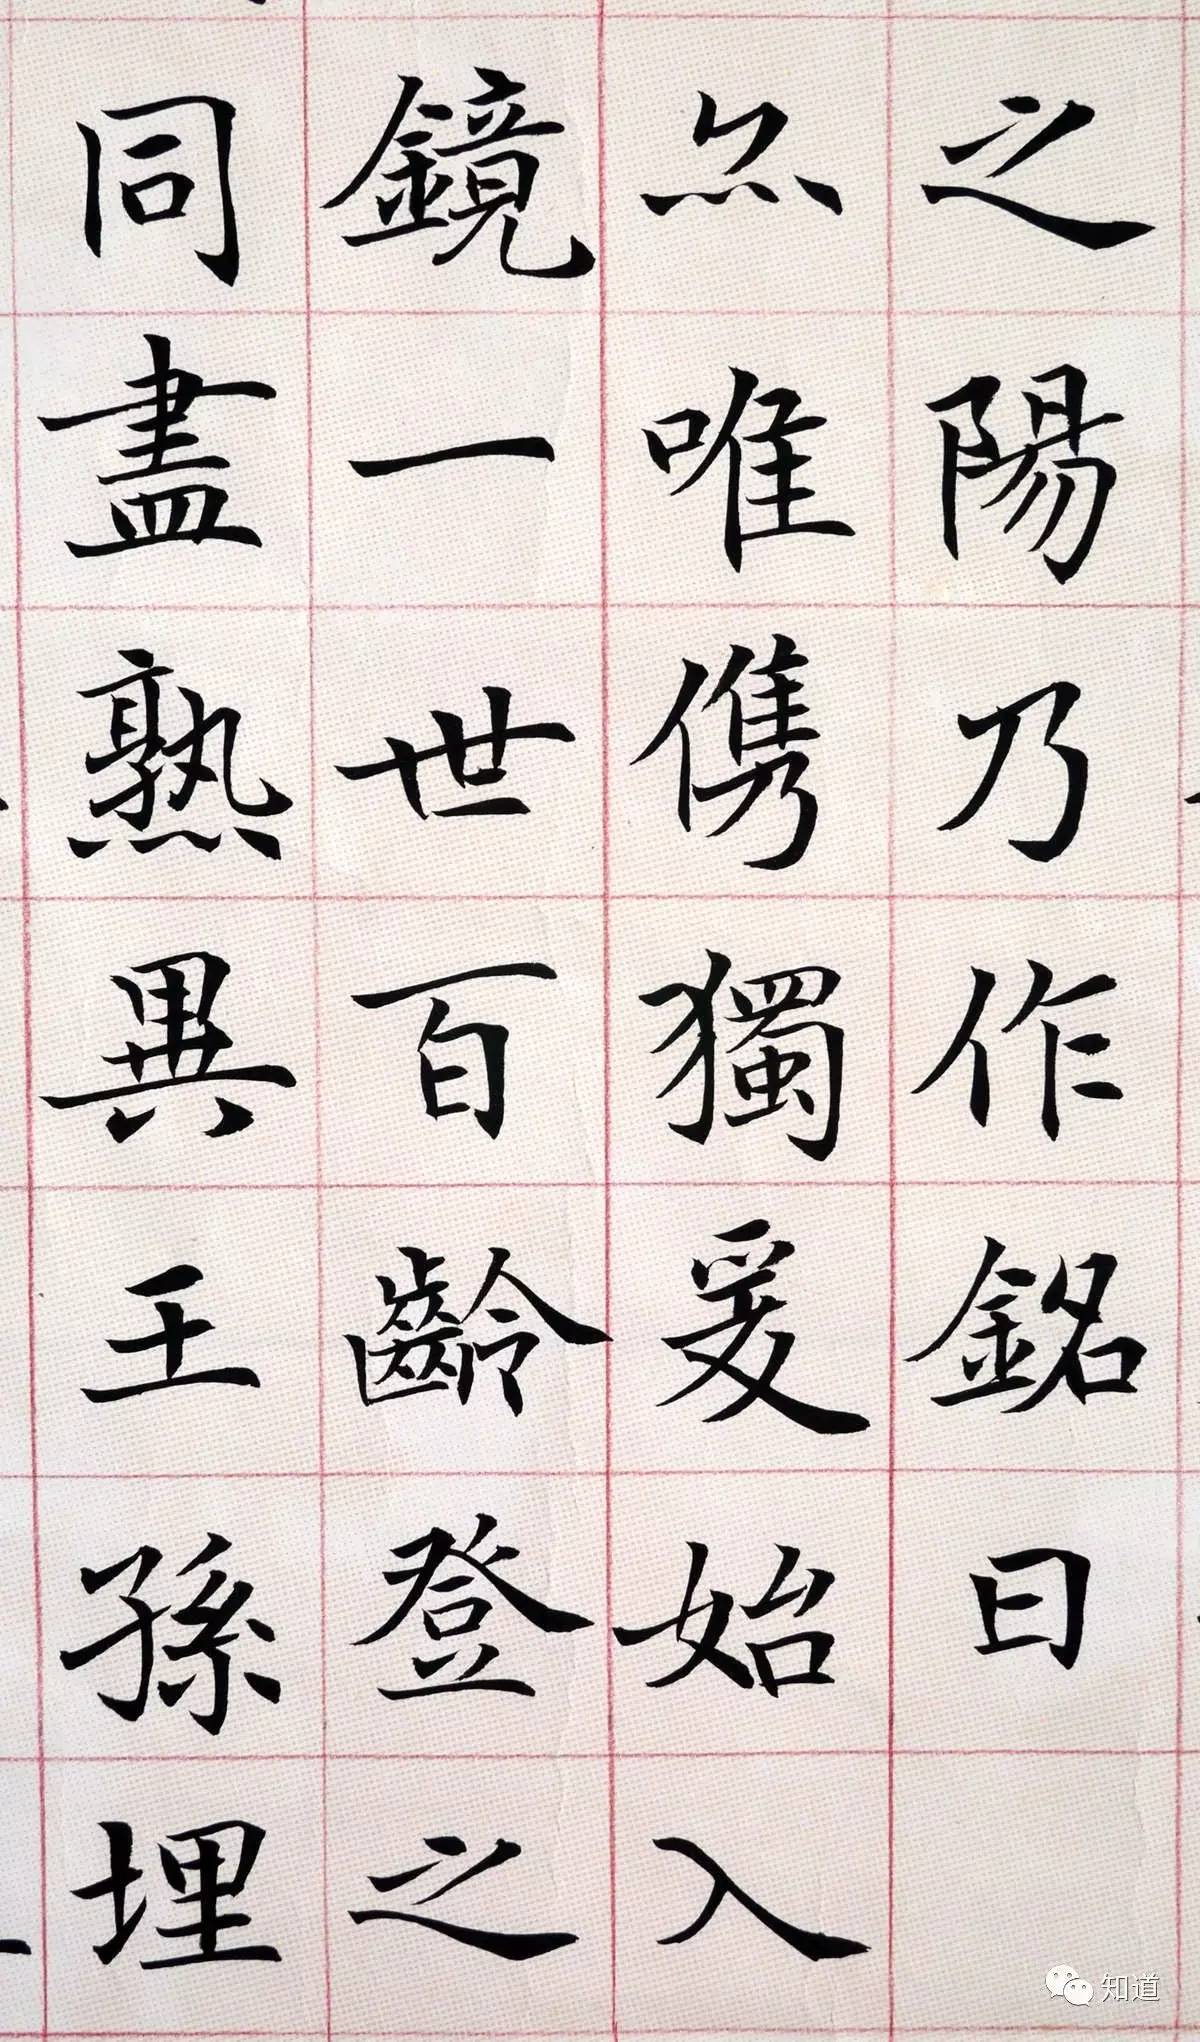 之陽乃作銘曰
唯儁獨爰始入
鏡一世百齡登之
同盡熟異王孫埋
知道